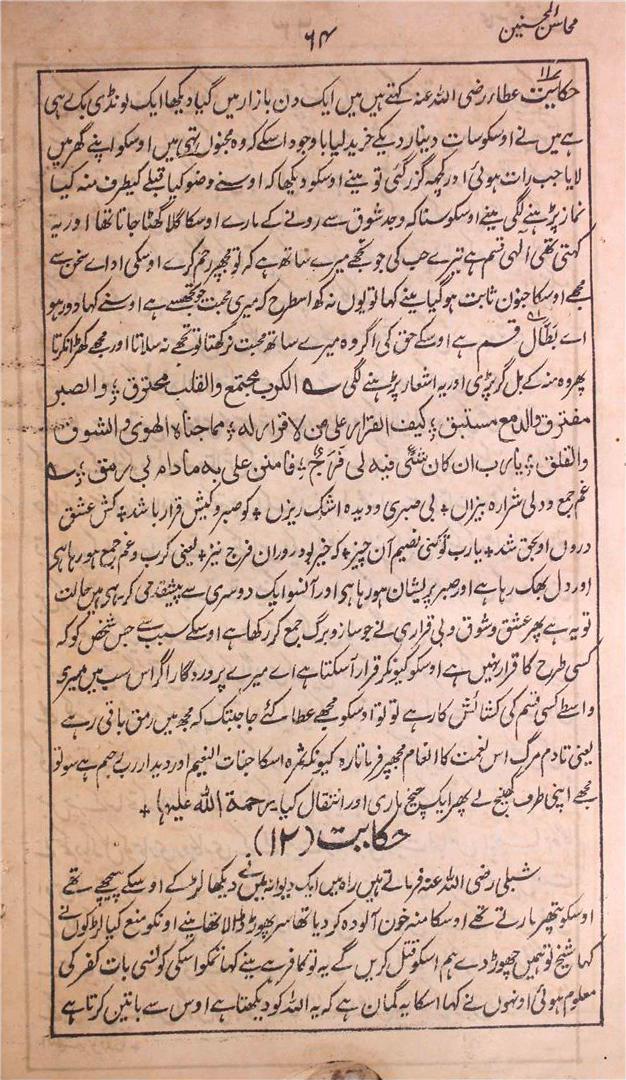 محاسن المحسنین
۶۴
حکایت ۱۱ عطاء رضی اللہ عنہ کہتے ہیں میں ایک دن بازار میں گیا دیکھا ایک لونڈی بک رہی
ہے میں نے اوسکو سات دینار دیکے خرید لیا با وجود اسکے کہ وہ مجنوں تھی میں اوسکو اپنے گھر میں
لایا جب رات ہوئی اور کچھ گزر گئی تو مینے اوسکو دیکھا کہ اوسنے وضو کیا قبلے کیطرف منہ کیا
نماز پڑہنے لگی مینے اوسکو سنا کہ وجد شوق سے رونے کے مارے اوسکا گلا گھٹا جاتا تھا اور یہ
کہتی تھی الٰہی قسم ہے تیرے حب کی جو تجھے میرے ساتھ ہے کہ تو مجھپر رحم کرے اوسکی اداے سخن سے
مجھے اوسکا جنون ثابت ہوگیا مینے کہا تو یوں نہ کہ اسطرح کہ میری محبت جو تجھسے ہے اوسنے کہا دور ہو
اے بطال قسم ہے اوسکے حق کی اگر وہ میرے ساتھ محبت نرکھتا تو تجھے نہ سلاتا اور مجھے کھڑا نکرتا
پھر وہ منہ کے بل گر پڑی اور یہ اشعار پڑہنے لگی الکرب مجتمع والقلب محترق ؛ والصبر
مفترق والدمع مستبق ؛ کیف القرار علی من لا قرار لہ ؛ مما جناہ الھوی والشوق
والقلق ؛ یارب ان کان شئی فیہ لی فرج ؛ فامنن علی بہ مادام بی رمق ؛
غم جمع و دلی شرارہ بیزاں + بی صبری و دیدہ اشک ریزں + کو صبر و کیش قرار باشد + کش عشق
دروں او بحق شد + یارب تو کنی نصیبم آن چیز + کہ خیر بود دران فرج نیز + یعنی کرب و غم جمع ہو رہا ہی
اور دل بھک رہا ہے اور صبر پریشان ہورہا ہی اور آنسو ایک دوسری سے پیشقدمی کر رہی ہیں حالت
تو یہ ہے پھر عشق و شوق و بی قراری نے جو ساز و برگ جمع کر رکھا ہے اوسکے سبب سے جس شخص کو کہ
کسی طرح کا قرار نہیں ہے اوسکو کیونکر قرار آسکتا ہے اے میرے پروردگار اگر اس سب میں میری
واسطے کسی قسم کی کشائش کار ہے تو تو اوسکو مجھے عطا کئے جا جبتک کہ مجھ میں رمق باقی رہے
یعنی تا دم مرگ اس نعمت کا انعام مجھپر فرماتا رہ کیونکہ ثمرہ اسکا جنات النعیم اور دیدار رب رحیم ہے سو تو
مجھے اپنی طرف کھینچ لے پھر ایک چیخ ماری اور انتقال کیا رحمة اللہ علیہا +
حکایت (۱۲)
شبلی رضی اللہ عنہ فرماتے ہیں راہ میں ایک دیوانہ مینے دیکھا لڑکے اوسکے پیچھے تھے
اوسکو پتھر مارتے تھے اوسکا منہ خون آلودہ کر دیا تھا سر پھوڑ ڈالا تھا مینے اونکو منع کیا لڑکوں نے
کہا شیخ تو ہمیں چھوڑ دے ہم اسکو قتل کریں گے یہ تو کافر ہے مینے کہا تمکو اسکی کونسی بات کفر کی
معلوم ہوئی اونہوں نے کہا اسکا یہ گمان ہے کہ یہ اللہ کو دیکھتا ہے اوس سے باتین کرتا ہے